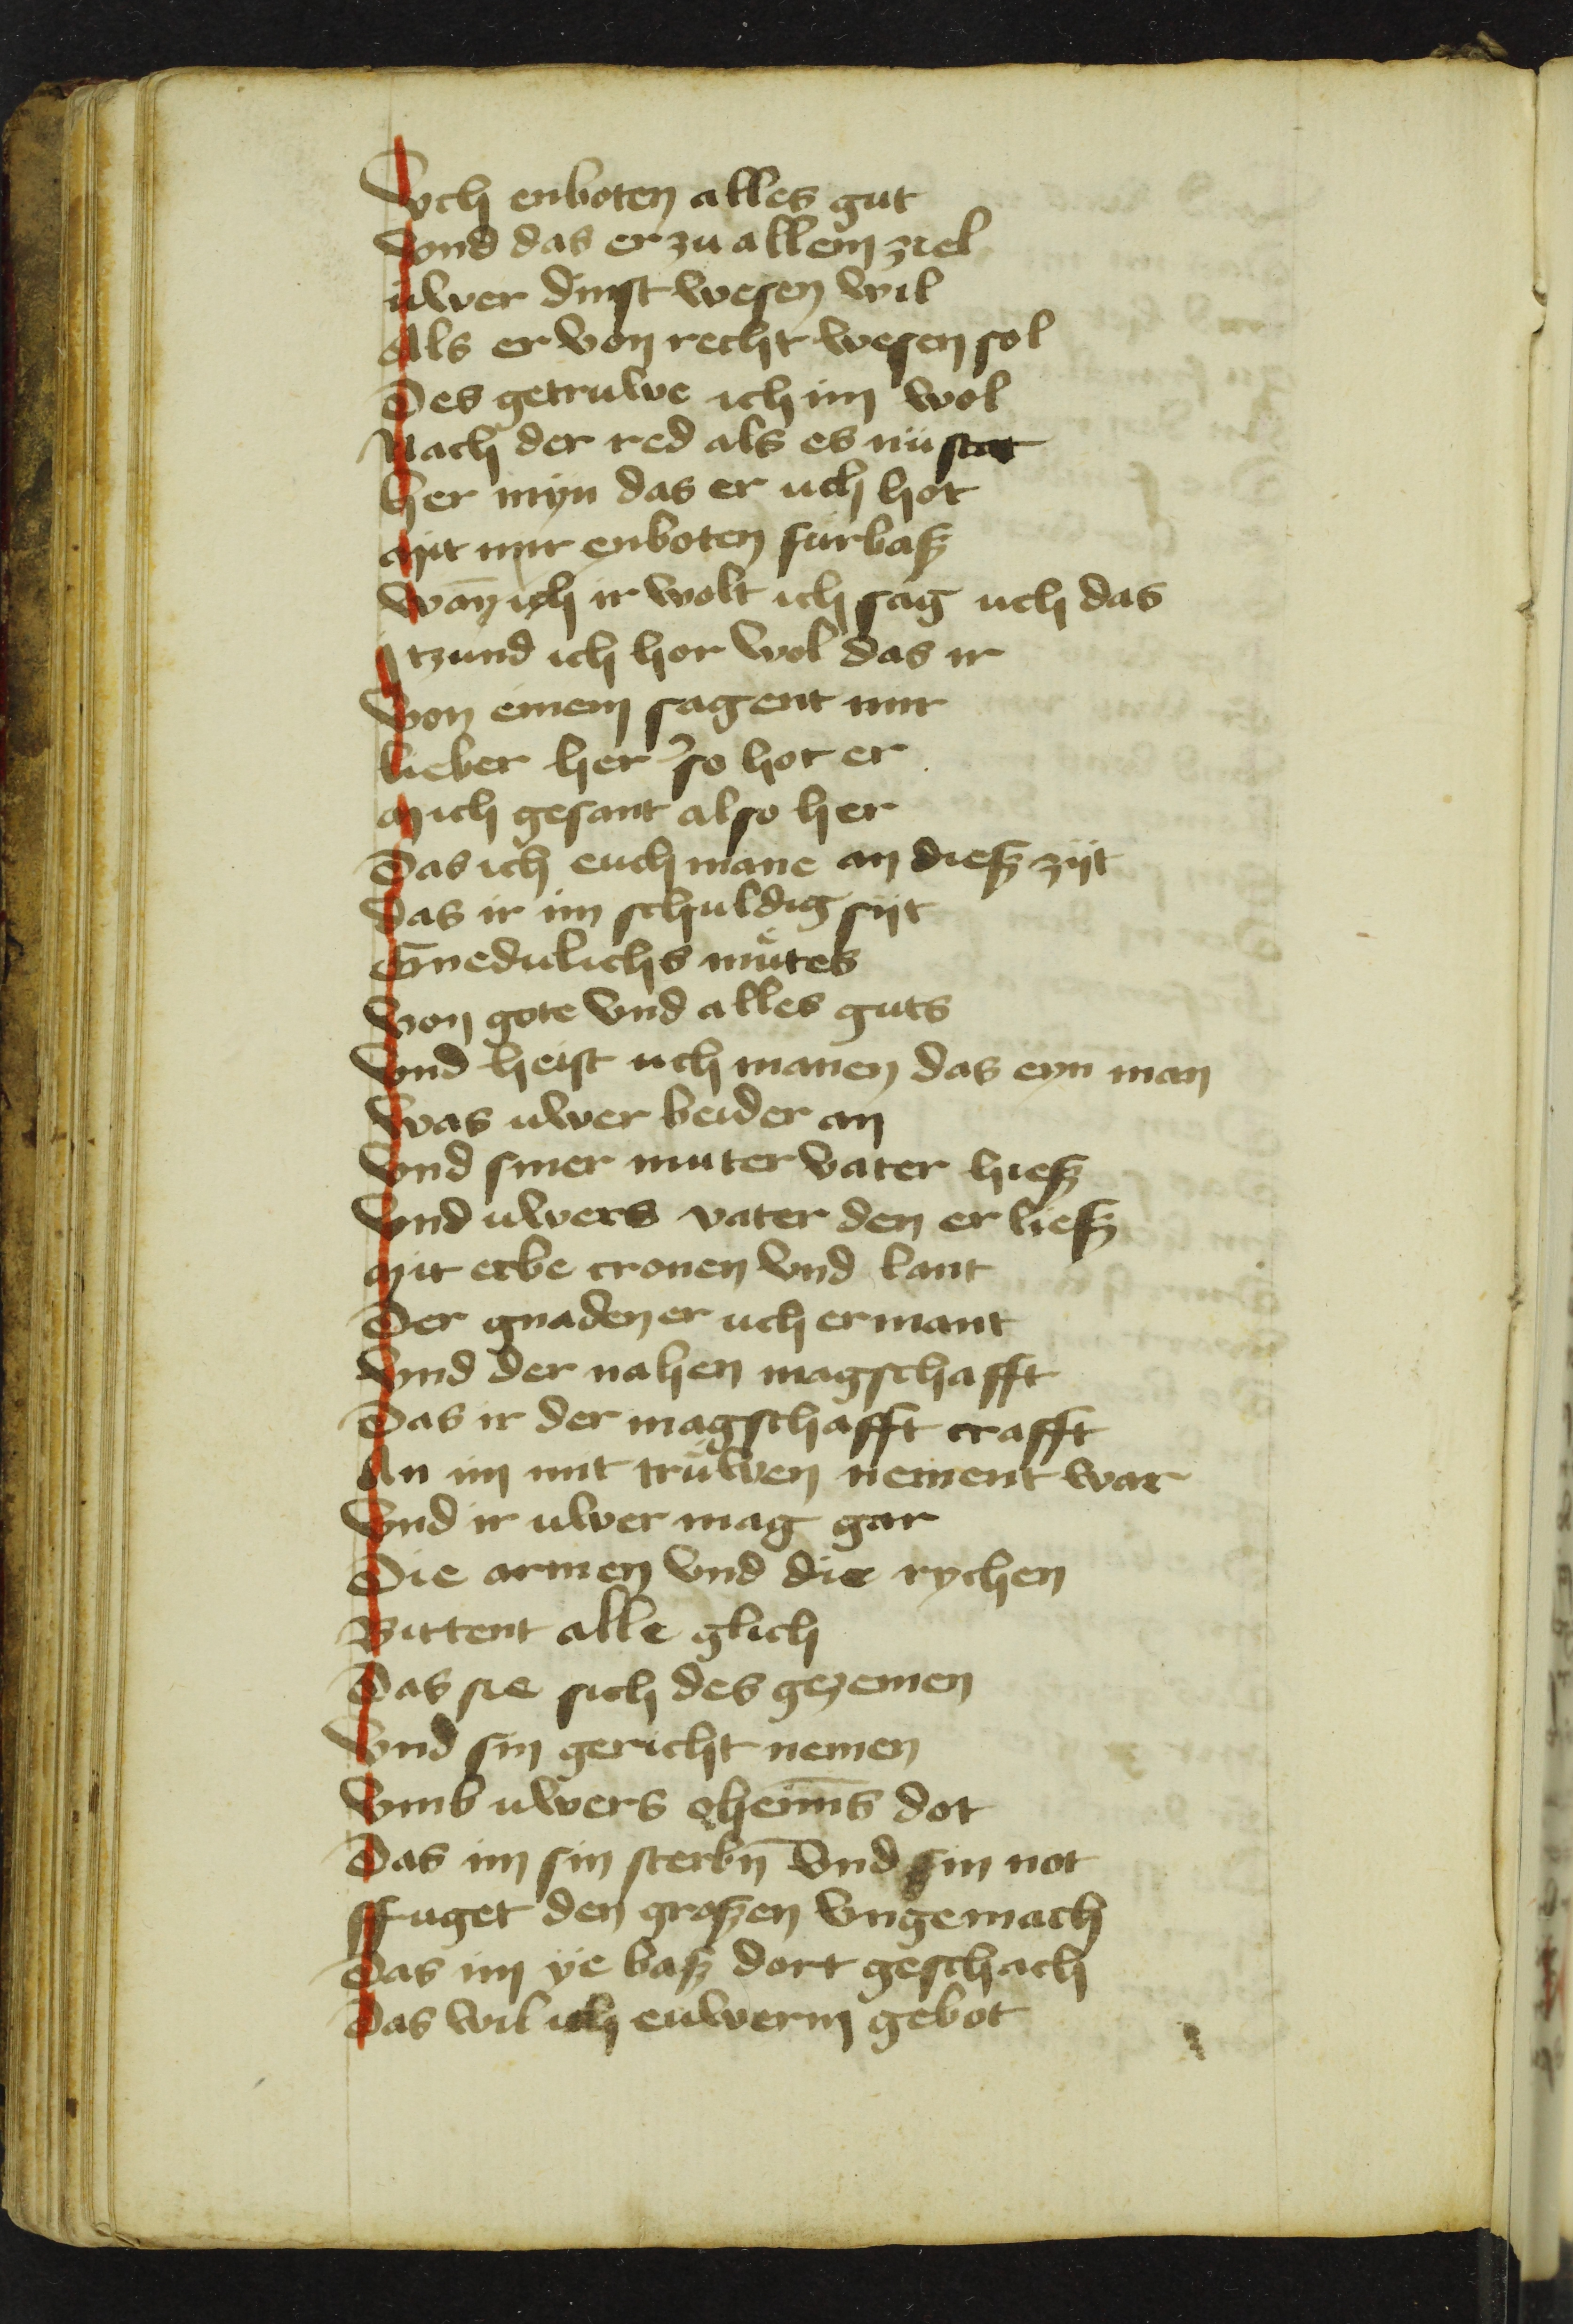 Vch enboten alles gut
Vnd das er zu allem ziel
uwer dinst wesen wil
Als er von recht wesen sol
Des getruwe ich im wol
Nach der red als es nü stat
her myn das er uch hot
Mit mir enboten fürbaß
Wañ ich ir wolt ich sag uch das
Itzund ich hor wol das ir
Von einem sagent mir
lieber her so hot er
Mich gesant also her
Das ich euch mane an dieß zijt
Das ir im schuldig sijt
Gnediclichs muͤtes
Von gote vnd alles guts
Vnd heist uch manen das eyn man
Was uwer beider an
Vnd siner muter vater hieß
Vnd uwers vater den er ließ
Mit erbe cronen vnd lant
Der gnaden er uch ermant
Vnd der nahen magschafft
Das ir der magschafft crafft
An im mit truͤwen nement war
Vnd ir uwer mag gar
Die armen vnd die rychen
Bittent alle glich
Das sie sich des gezemen
Vnd sin gericht nemen
Vmb uwers oheim̄s dot
Das im sin sterbn̄ vnd sin not
ffuget den großen vngemach
Das im ÿe baß dort geschach
Das wil ich euwerm gebot